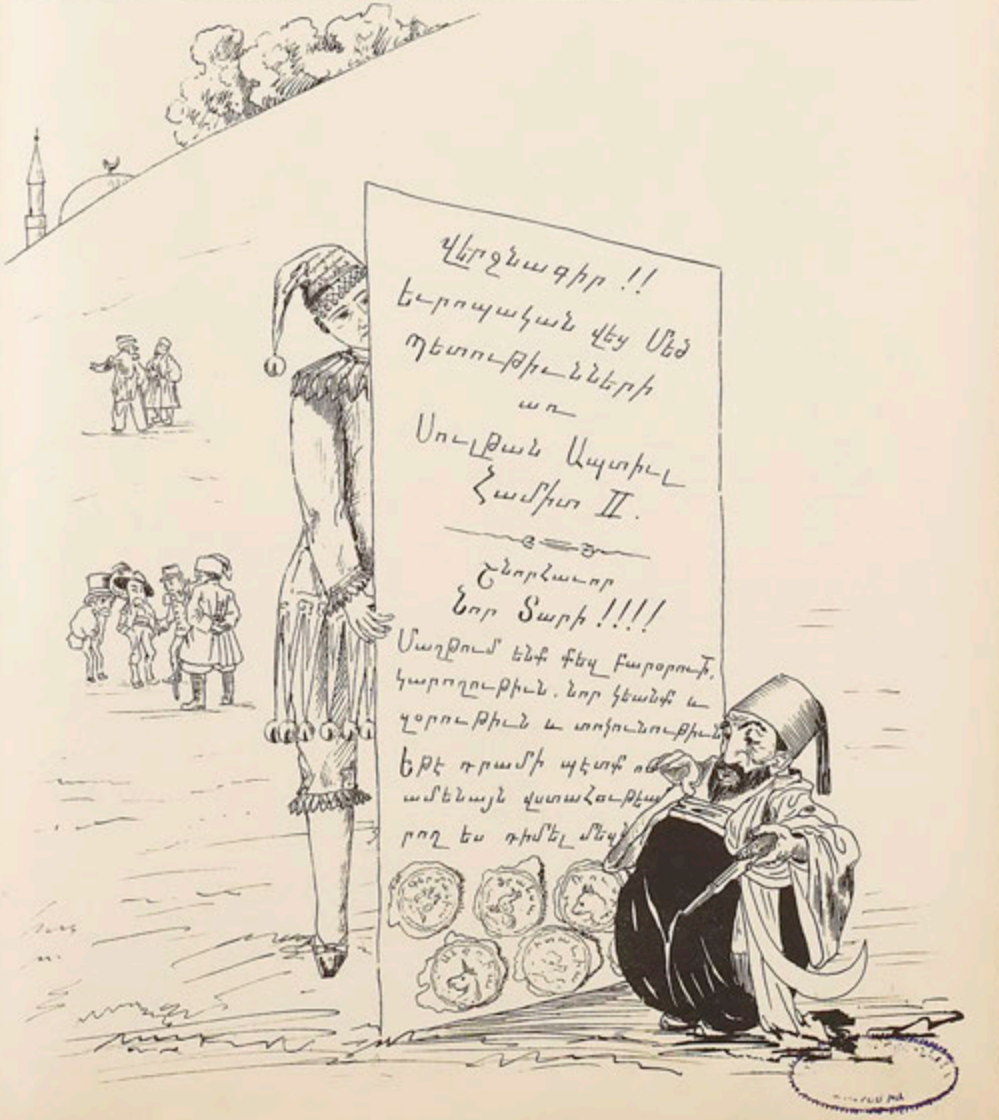 Վերջնագիր !!
Եւրոպական վեց Մեծ
Պետութիւնների
առ
Սուլթան Ապտիւլ
Համիտ II.
Շնորհաւոր
Նոր Տարի !!!!
Մաղթում ենք քեզ բարօրութի.
կարողութիւն. նոր կեանք և
զօրութիւն և տոկունութիւն
Եթէ դրամի պէտք
ամենայն վստահութեամ
րող ես դիմել մեզ